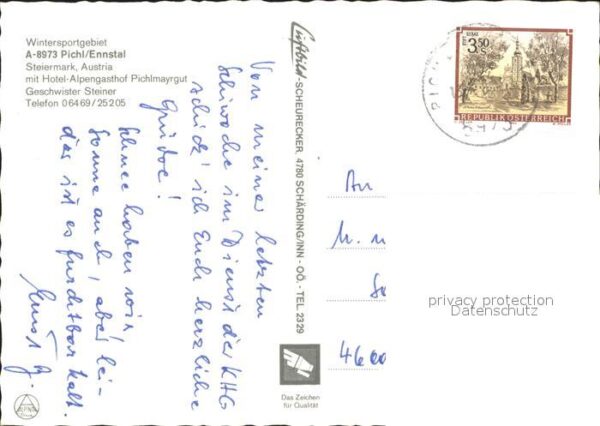 Wintersportgebiet
A-8973 Pichl/Ennstal
Steiermark, Austria
mit Hotel-Alpengasthof Pichlmayrgut
Geschwister Steiner
Telefon 06469/25205
Von meiner letzten
Schiwoche im Dienst der KHG
schick' ich Euch herzliche
Grüße!
Schnee haben wir,
Sonne auch, aber lei-
der ist es furchtbar kalt.
Luftbild-SCHEURECKER 4780 SCHÄRDING/INN - OÖ. - TEL. 2329
Das Zeichen
für Qualität
3.50
S
REPUBLIK ÖSTERREICH
An
4600
privacy protection
Datenschutz